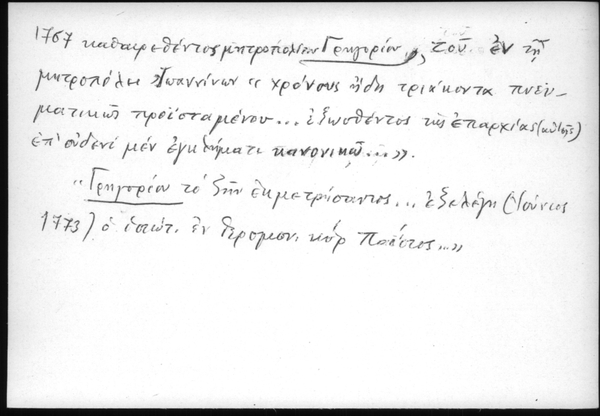 1767 καθαιρεθέντος μητροπολίτου Γρηγορίου, τοῦ ἐν τῇ
μητροπόλει Ἰωαννίνων "χρόνους ἤδη τριάκοντα πνευ-
ματικῶς προϊσταμένου... ἐξωσθέντος τῆς ἐπαρχίας
ἐπ' οὐδενί μέν ἐγκλήματι κανονικῷ...".
"Γρηγορίου τό ζῆν ἐκμετρήσαντος... ἐξελέγη (Ἰούνιος
1773) ὁ ἐν κύρ Παΐσιος..."